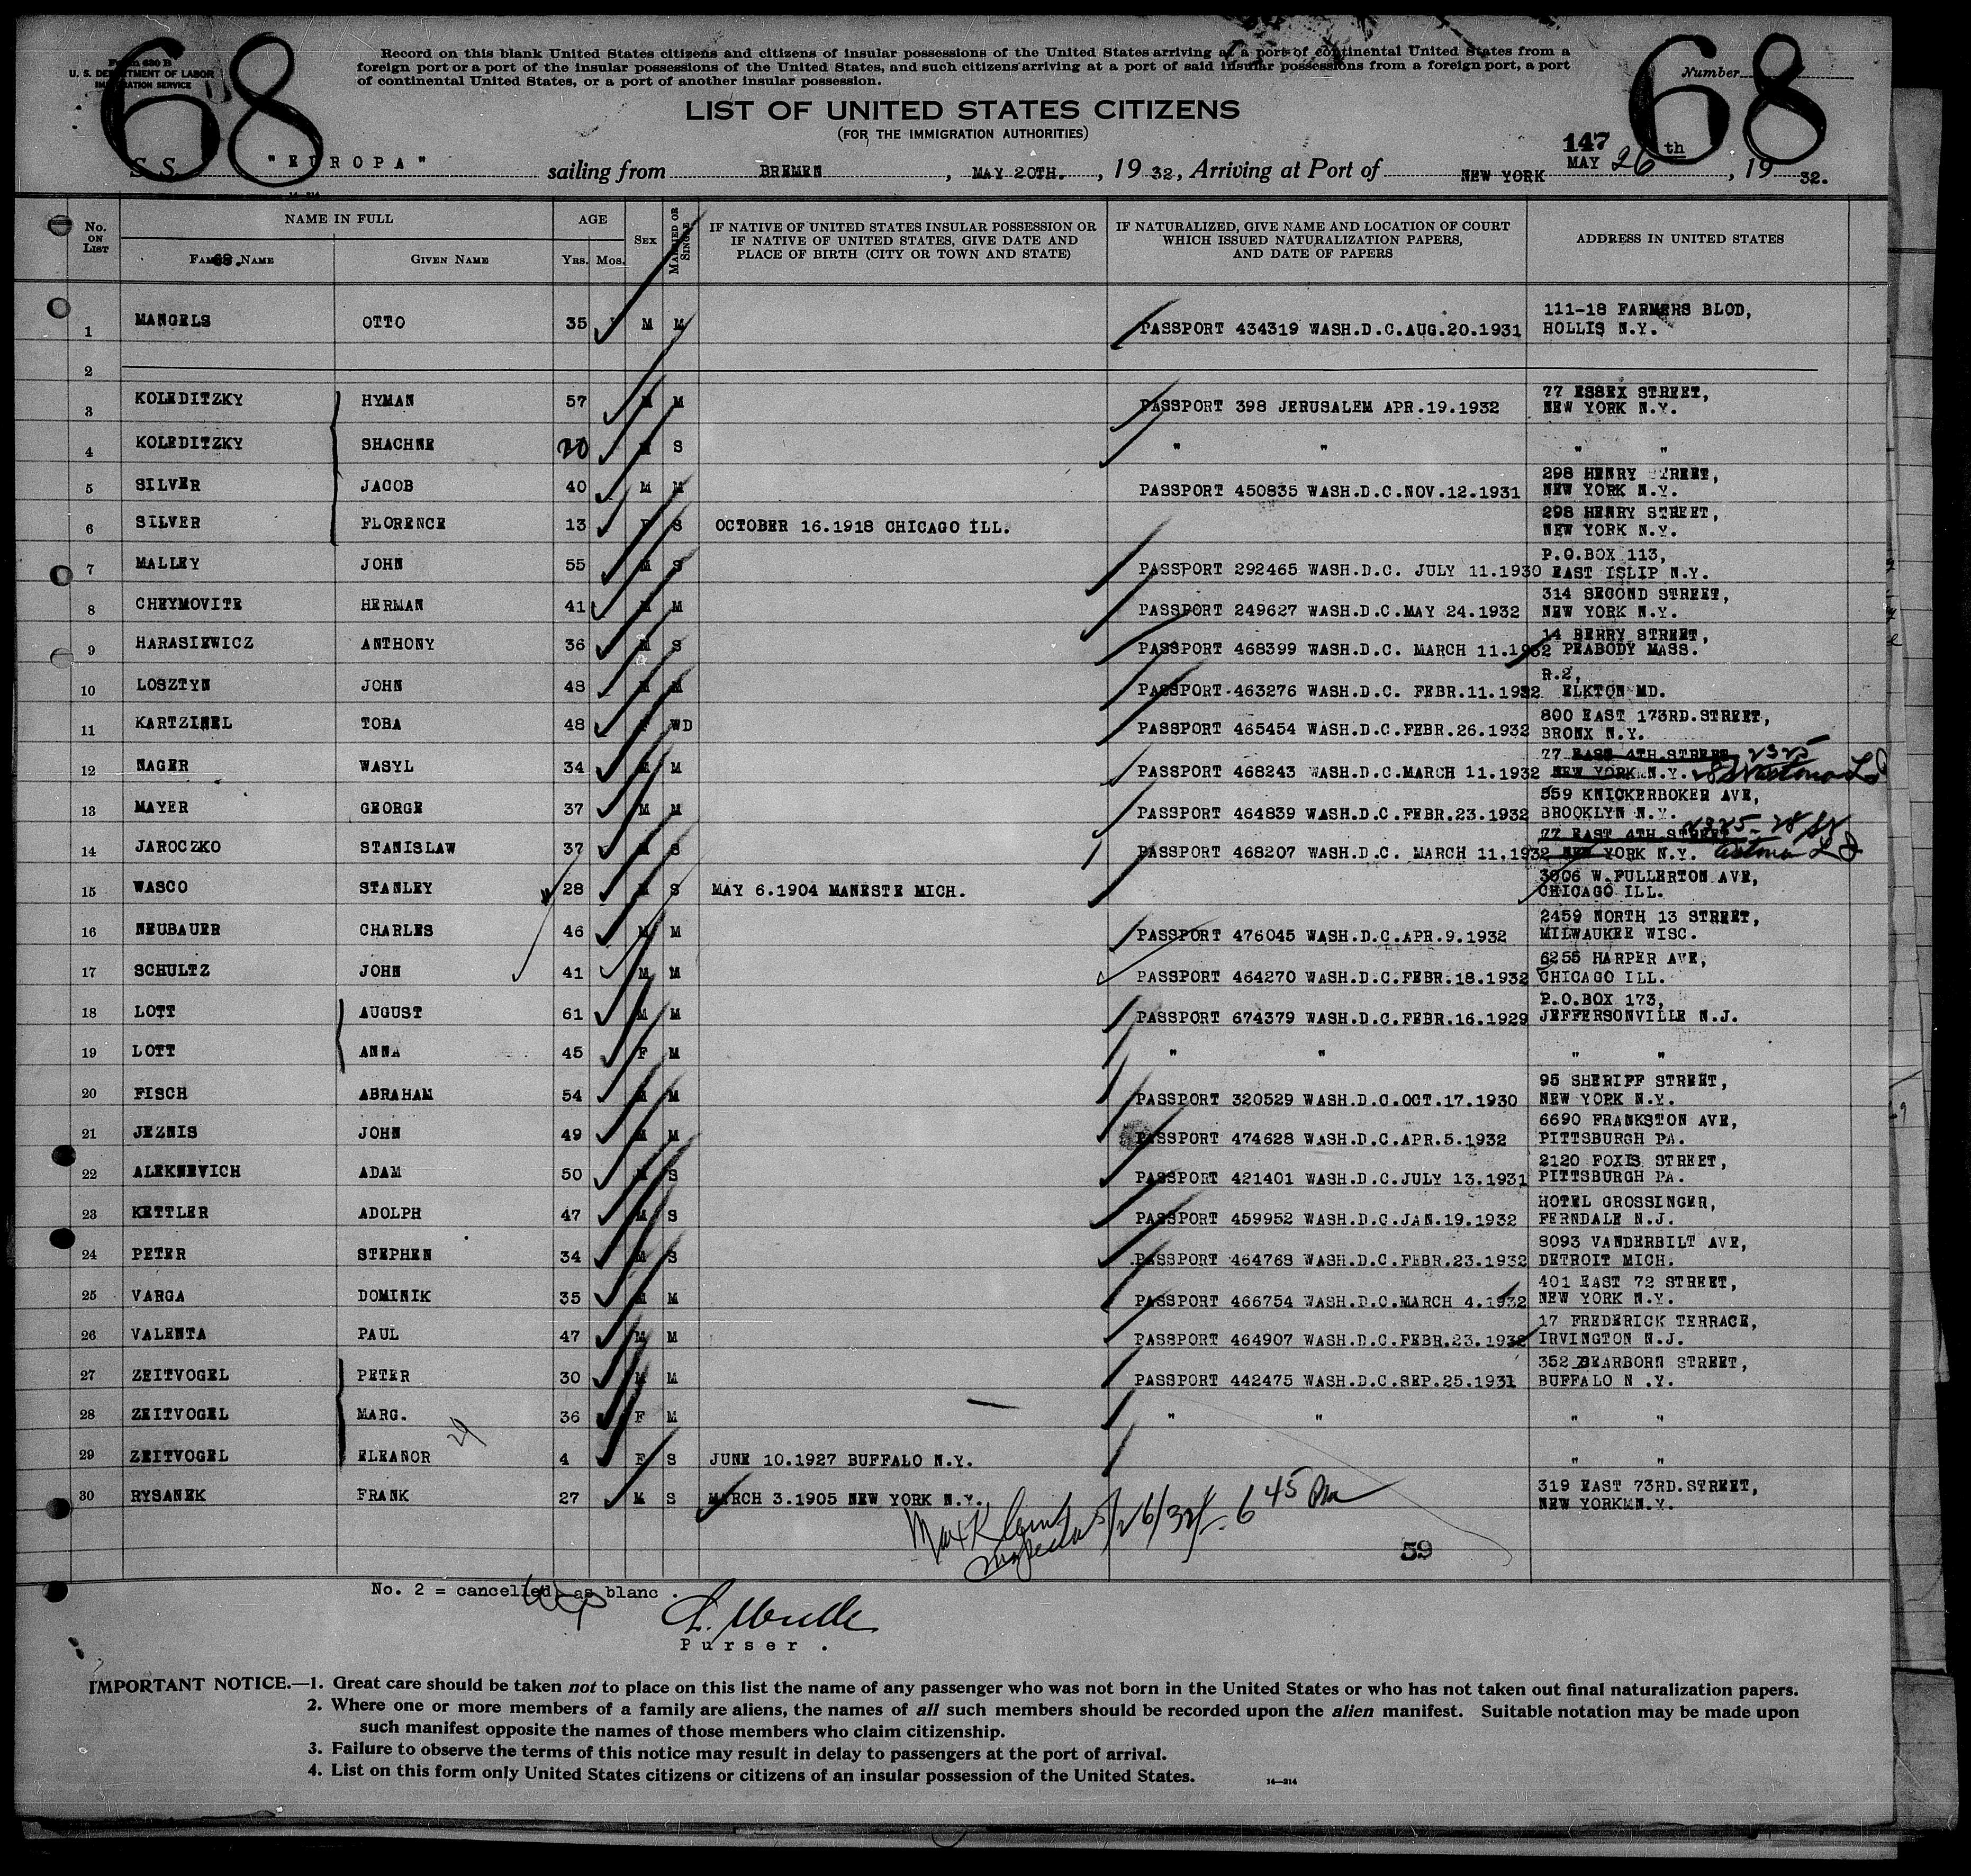 68
68
Form 630 B
U. S. DEPARTMENT OF LABOR
IMMIGRATION SERVICE
Record on this blank United States citizens and citizens of insular possessions of the United States arriving at a port of continental United States from a
foreign port or a port of the insular possessions of the United States, and such citizens arriving at a port of said insular possessions from a foreign port, a port
of continental United States, or a port of another insular possession.
Number
LIST OF UNITED STATES CITIZENS
(FOR THE IMMIGRATION AUTHORITIES)
147
S S "EUROPA" sailing from BREMEN, MAY 20TH., 19 32, Arriving at Port of NEW YORK MAY 26 th, 19 32.
No. ON LIST NAME IN FULL AGE SEX MARRIED OR SINGLE IF NATIVE OF UNITED STATES INSULAR POSSESSION OR IF NATIVE OF UNITED STATES, GIVE DATE AND PLACE OF BIRTH (CITY OR TOWN AND STATE) IF NATURALIZED, GIVE NAME AND LOCATION OF COURT WHICH ISSUED NATURALIZATION PAPERS, AND DATE OF PAPERS ADDRESS IN UNITED STATES
FAMILY NAME GIVEN NAME YRS. MOS.
68.
1 MANGELS OTTO 35 M M PASSPORT 434319 WASH.D.C.AUG.20.1931 111-18 FARMERS BLOD, HOLLIS N.Y.
2
3 KOLEDITZKY HYMAN 57 M M PASSPORT 398 JERUSALEM APR.19.1932 77 ESSEX STREET, NEW YORK N.Y.
4 KOLEDITZKY SHACHNE 20 M S " " " "
5 SILVER JACOB 40 M M PASSPORT 450835 WASH.D.C.NOV.12.1931 298 HENRY STREET, NEW YORK N.Y.
6 SILVER FLORENCE 13 F S OCTOBER 16.1918 CHICAGO ILL. 298 HENRY STREET, NEW YORK N.Y.
7 MALLEY JOHN 55 M S PASSPORT 292465 WASH.D.C. JULY 11.1930 P.O.BOX 113, EAST ISLIP N.Y.
8 CHEYMOVITE HERMAN 41 M M PASSPORT 249627 WASH.D.C.MAY 24.1932 314 SECOND STREET, NEW YORK N.Y.
9 HARASIEWICZ ANTHONY 36 M S PASSPORT 468399 WASH.D.C. MARCH 11.1932 14 BERRY STREET, PEABODY MASS.
10 LOSZTYN JOHN 48 M M PASSPORT 463276 WASH.D.C. FEBR.11.1932 R.2, ELKTON MD.
11 KARTZINEL TOBA 48 F WD PASSPORT 465454 WASH.D.C.FEBR.26.1932 800 EAST 173RD.STREET, BRONX N.Y.
12 NAGER WASYL 34 M M PASSPORT 468243 WASH.D.C.MARCH 11.1932 77 EAST 4TH STREET NEW YORK N.Y. 2325
13 MAYER GEORGE 37 M M PASSPORT 464839 WASH.D.C.FEBR.23.1932 559 KNICKERBOKER AVE, BROOKLYN N.Y.
14 JAROCZKO STANISLAW 37 M S PASSPORT 468207 WASH.D.C. MARCH 11.1932 77 EAST 4TH STREET NEW YORK N.Y.
15 WASCO STANLEY 28 M S MAY 6.1904 MANESTE MICH. 3006 W.FULLERTON AVE, CHICAGO ILL.
16 NEUBAUER CHARLES 46 M M PASSPORT 476045 WASH.D.C.APR.9.1932 2459 NORTH 13 STREET, MILWAUKEE WISC.
17 SCHULTZ JOHN 41 M M PASSPORT 464270 WASH.D.C.FEBR.18.1932 6255 HARPER AVE, CHICAGO ILL.
18 LOTT AUGUST 61 M M PASSPORT 674379 WASH.D.C.FEBR.16.1929 P.O.BOX 173, JEFFERSONVILLE N.J.
19 LOTT ANNA 45 F M " " " "
20 FISCH ABRAHAM 54 M M PASSPORT 320529 WASH.D.C.OCT.17.1930 95 SHERIFF STREET, NEW YORK N.Y.
21 JEZNIS JOHN 49 M M PASSPORT 474628 WASH.D.C.APR.5.1932 6690 FRANKSTON AVE, PITTSBURGH PA.
22 ALEKNEVICH ADAM 50 M S PASSPORT 421401 WASH.D.C.JULY 13.1931 2120 FOXIS STREET, PITTSBURGH PA.
23 KETTLER ADOLPH 47 M S PASSPORT 459952 WASH.D.C.JAN.19.1932 HOTEL GROSSINGER, FERNDALE N.J.
24 PETER STEPHEN 34 M S PASSPORT 464768 WASH.D.C.FEBR.23.1932 8093 VANDERBILT AVE, DETROIT MICH.
25 VARGA DOMINIK 35 M M PASSPORT 466754 WASH.D.C.MARCH 4.1932 401 EAST 72 STREET, NEW YORK N.Y.
26 VALENTA PAUL 47 M M PASSPORT 464907 WASH.D.C.FEBR.23.1932 17 FREDERICK TERRACE, IRVINGTON N.J.
27 ZEITVOGEL PETER 30 M M PASSPORT 442475 WASH.D.C.SEP.25.1931 352 DEARBORN STREET, BUFFALO N .Y.
28 ZEITVOGEL MARG. 36 F M " " " "
29 ZEITVOGEL ELEANOR 4 F S JUNE 10.1927 BUFFALO N.Y. " "
30 RYSANEK FRANK 27 M S MARCH 3.1905 NEW YORK N.Y. 319 EAST 73RD.STREET, NEW YORK N.Y.
5/26/32 - 6 45 Pm
Inspector
59
No. 2 = cancelled as blanc .
Purser .
IMPORTANT NOTICE.—1. Great care should be taken not to place on this list the name of any passenger who was not born in the United States or who has not taken out final naturalization papers.
2. Where one or more members of a family are aliens, the names of all such members should be recorded upon the alien manifest. Suitable notation may be made upon
such manifest opposite the names of those members who claim citizenship.
3. Failure to observe the terms of this notice may result in delay to passengers at the port of arrival.
4. List on this form only United States citizens or citizens of an insular possession of the United States.
14—214